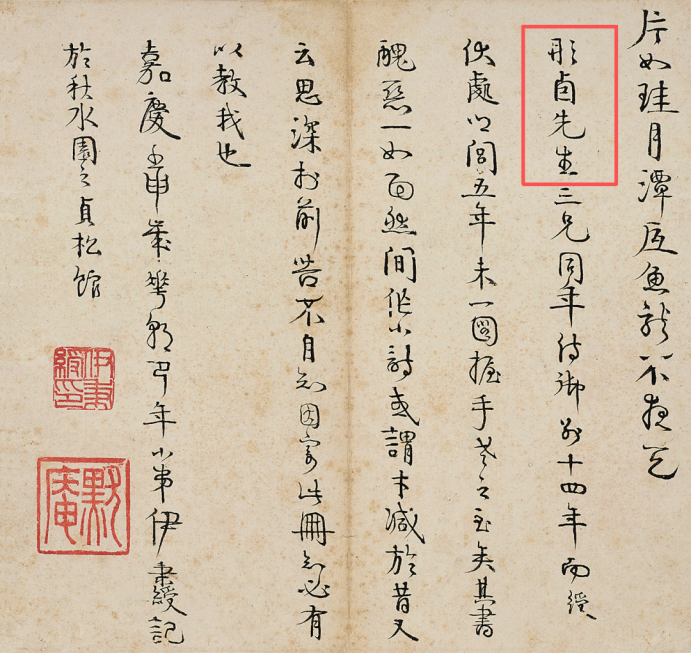 片如珪月潭底魚龍不夜
彤卣先生三兄同年侍御別十四年而綬
伏處里閭五年未一圖握手老之至矣其書
醜惡一如面然間作小詩或謂才減於昔又
云思深於前皆不自知因寄此冊知必有
以教我也
嘉慶壬申歲華朝日年小弟伊秉綬記
於秋水園之貞松館
伊秉綬印
默庵